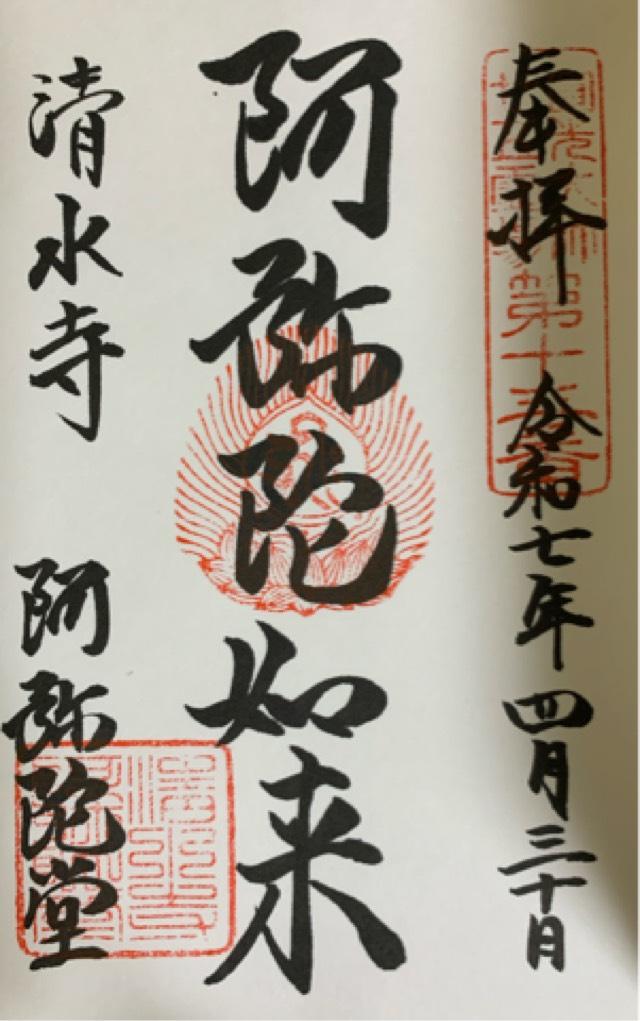 奉拝
第十三番
令和七年四月三十日
阿弥陀如来
清水寺
阿弥陀堂
清水寺